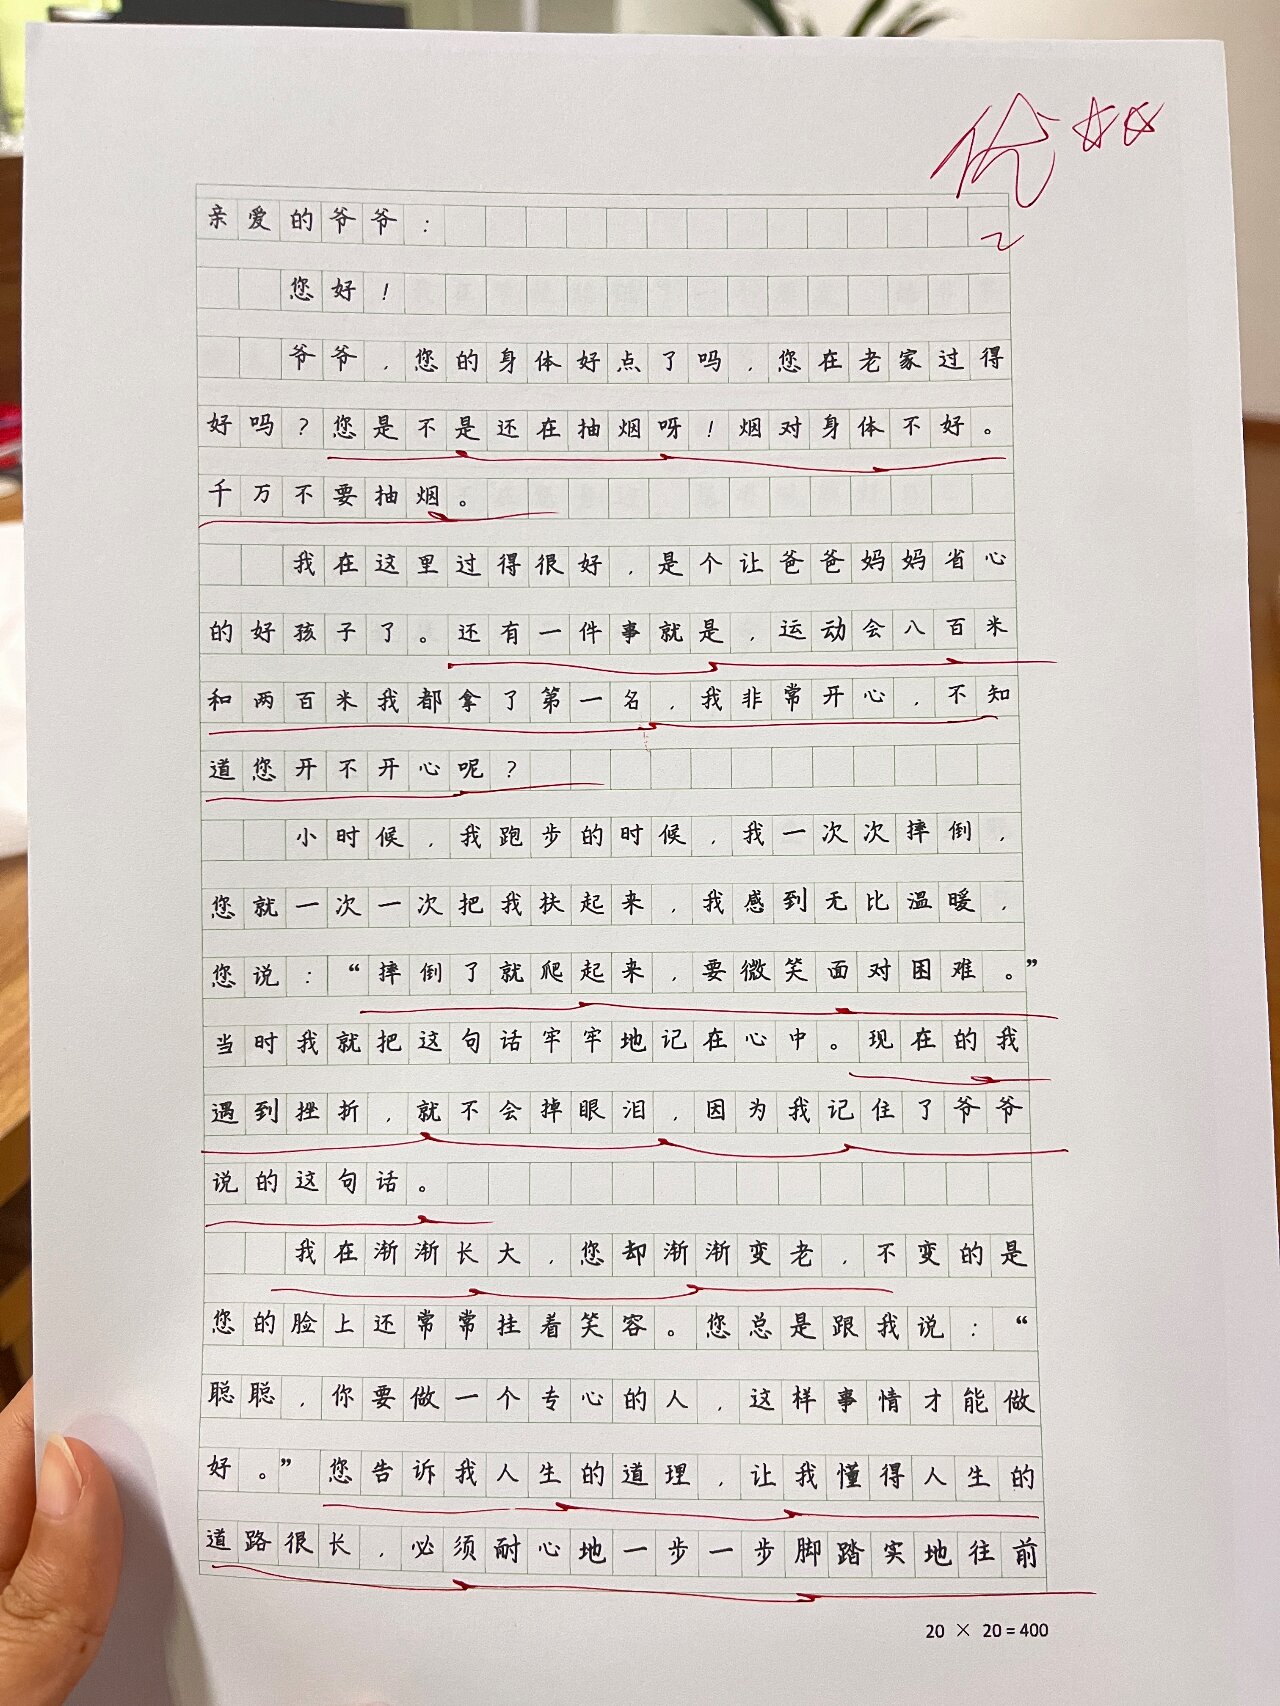 优
亲爱的爷爷：
您好！
爷爷，您的身体好点了吗，您在老家过得
好吗？您是不是还在抽烟呀！烟对身体不好。
千万不要抽烟。
我在这里过得很好，是个让爸爸妈妈省心
的好孩子了。还有一件事就是，运动会八百米
和两百米我都拿了第一名，我非常开心，不知
道您开不开心呢？
小时候，我跑步的时候，我一次次摔倒，
您就一次一次把我扶起来，我感到无比温暖，
您说：“摔倒了就爬起来，要微笑面对困难。”
当时我就把这句话牢牢地记在心中。现在的我
遇到挫折，就不会掉眼泪，因为我记住了爷爷
说的这句话。
我在渐渐长大，您却渐渐变老，不变的是
您的脸上还常常挂着笑容。您总是跟我说：“
聪聪，你要做一个专心的人，这样事情才能做
好。”您告诉我人生的道理，让我懂得人生的
道路很长，必须耐心地一步一步脚踏实地往前
20 × 20 = 400